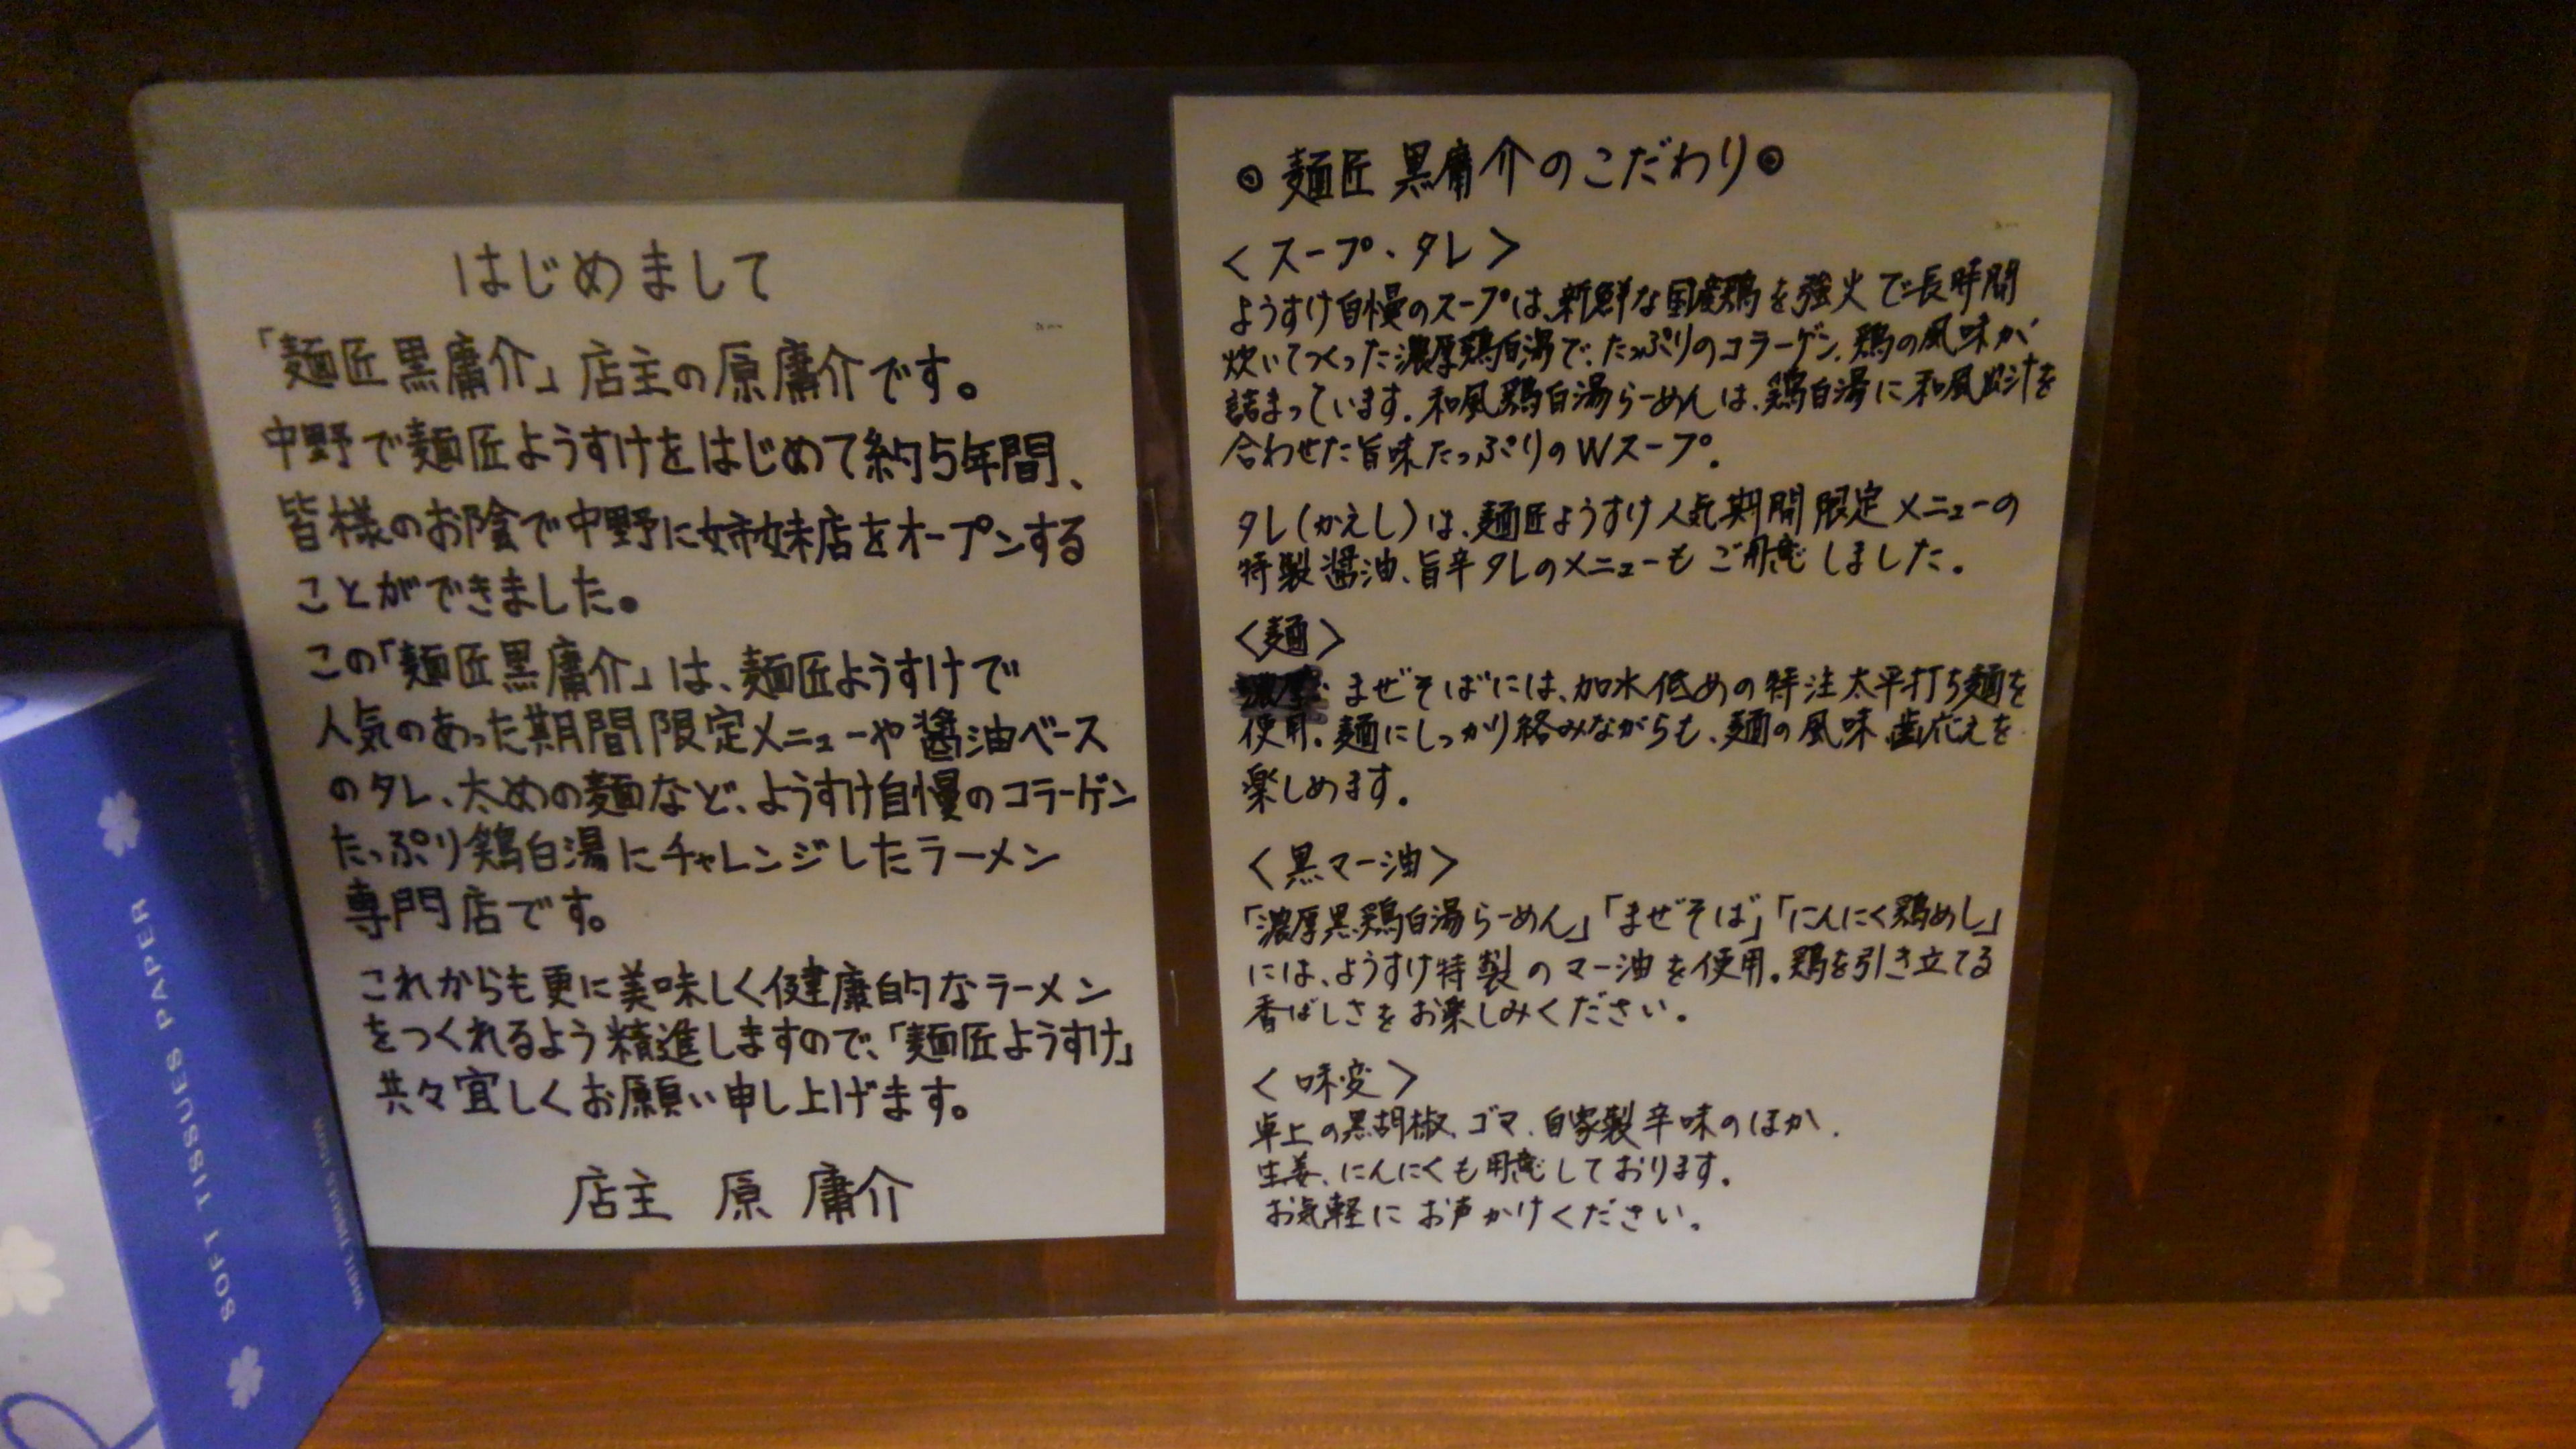 はじめまして
「麺匠黒庸介」店主の原庸介です。
中野で麺匠ようすけをはじめて約5年間、
皆様のお陰で中野に姉妹店をオープンする
ことができました。
この「麺匠黒庸介」は、麺匠ようすけで
人気のあった期間限定メニューや醤油ベース
のタレ、太めの麺など、ようすけ自慢のコラーゲン
たっぷり鶏白湯にチャレンジしたラーメン
専門店です。
これからも更に美味しく健康的なラーメン
をつくれるよう精進しますので、「麺匠ようすけ」
共々宜しくお願い申し上げます。
店主 原 庸介
◎麺匠 黒庸介のこだわり◎
<スープ・タレ>
ようすけ自慢のスープは、新鮮な国産鶏を強火で長時間
炊いてつくった濃厚鶏白湯で、たっぷりのコラーゲン、鶏の風味が
詰まっています。和風鶏白湯らーめんは、鶏白湯に和風出汁を
合わせた旨味たっぷりのWスープ。
タレ(かえし)は、麺匠ようすけ人気期間限定メニューの
特製醤油、旨辛タレのメニューもご用意しました。
<麺>
まぜそばには、加水低めの特注太平打ち麺を
使用。麺にしっかり絡みながらも、麺の風味、歯応えを
楽しめます。
<黒マー油>
「濃厚黒鶏白湯らーめん」「まぜそば」「にんにく鶏めし」
には、ようすけ特製のマー油を使用。鶏を引き立てる
香ばしさをお楽しみください。
<味変>
卓上の黒胡椒、ゴマ、自家製辛味のほか、
生姜、にんにくも用意しております。
お気軽にお声かけください。
SOFT TISSUES PAPER